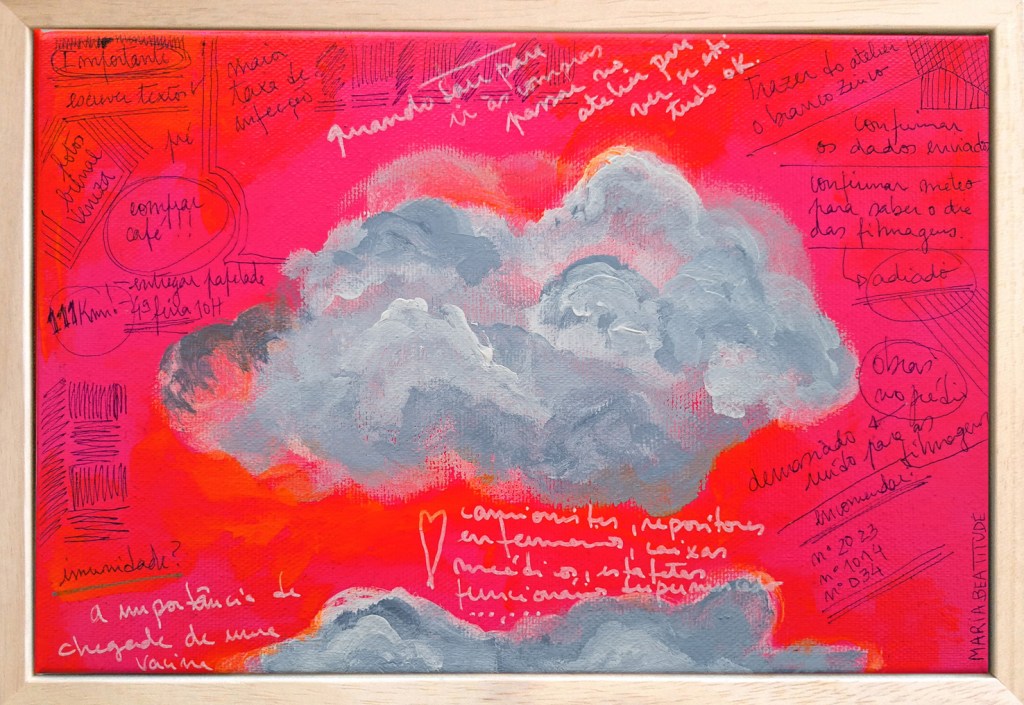 Importante
escrever textos!
fotos
biénal
Veneza
pré
maior
taxa de
infecção
comprar
café!!!
entregar papelada
4ª feira 10H
111Km!
quando sair para
ir às compras
passar no
atelier para
ver se está
tudo
ok.
Trazer do atelier
o branco zinco
confirmar
os dados enviados
confirmar meteo
para saber o dia
das filmagens.
adiado
obras
no prédio
demasiado
ruído para as
filmagens
encomendar:
nº 2023
nº 1014
nº 034
imunidade?
a importância da
chegada de uma
vacina
camionistas, repositores
enfermeiros, caixas
médicos, estafetas
funcionários supermercado
......
MARIA BEATITUDE